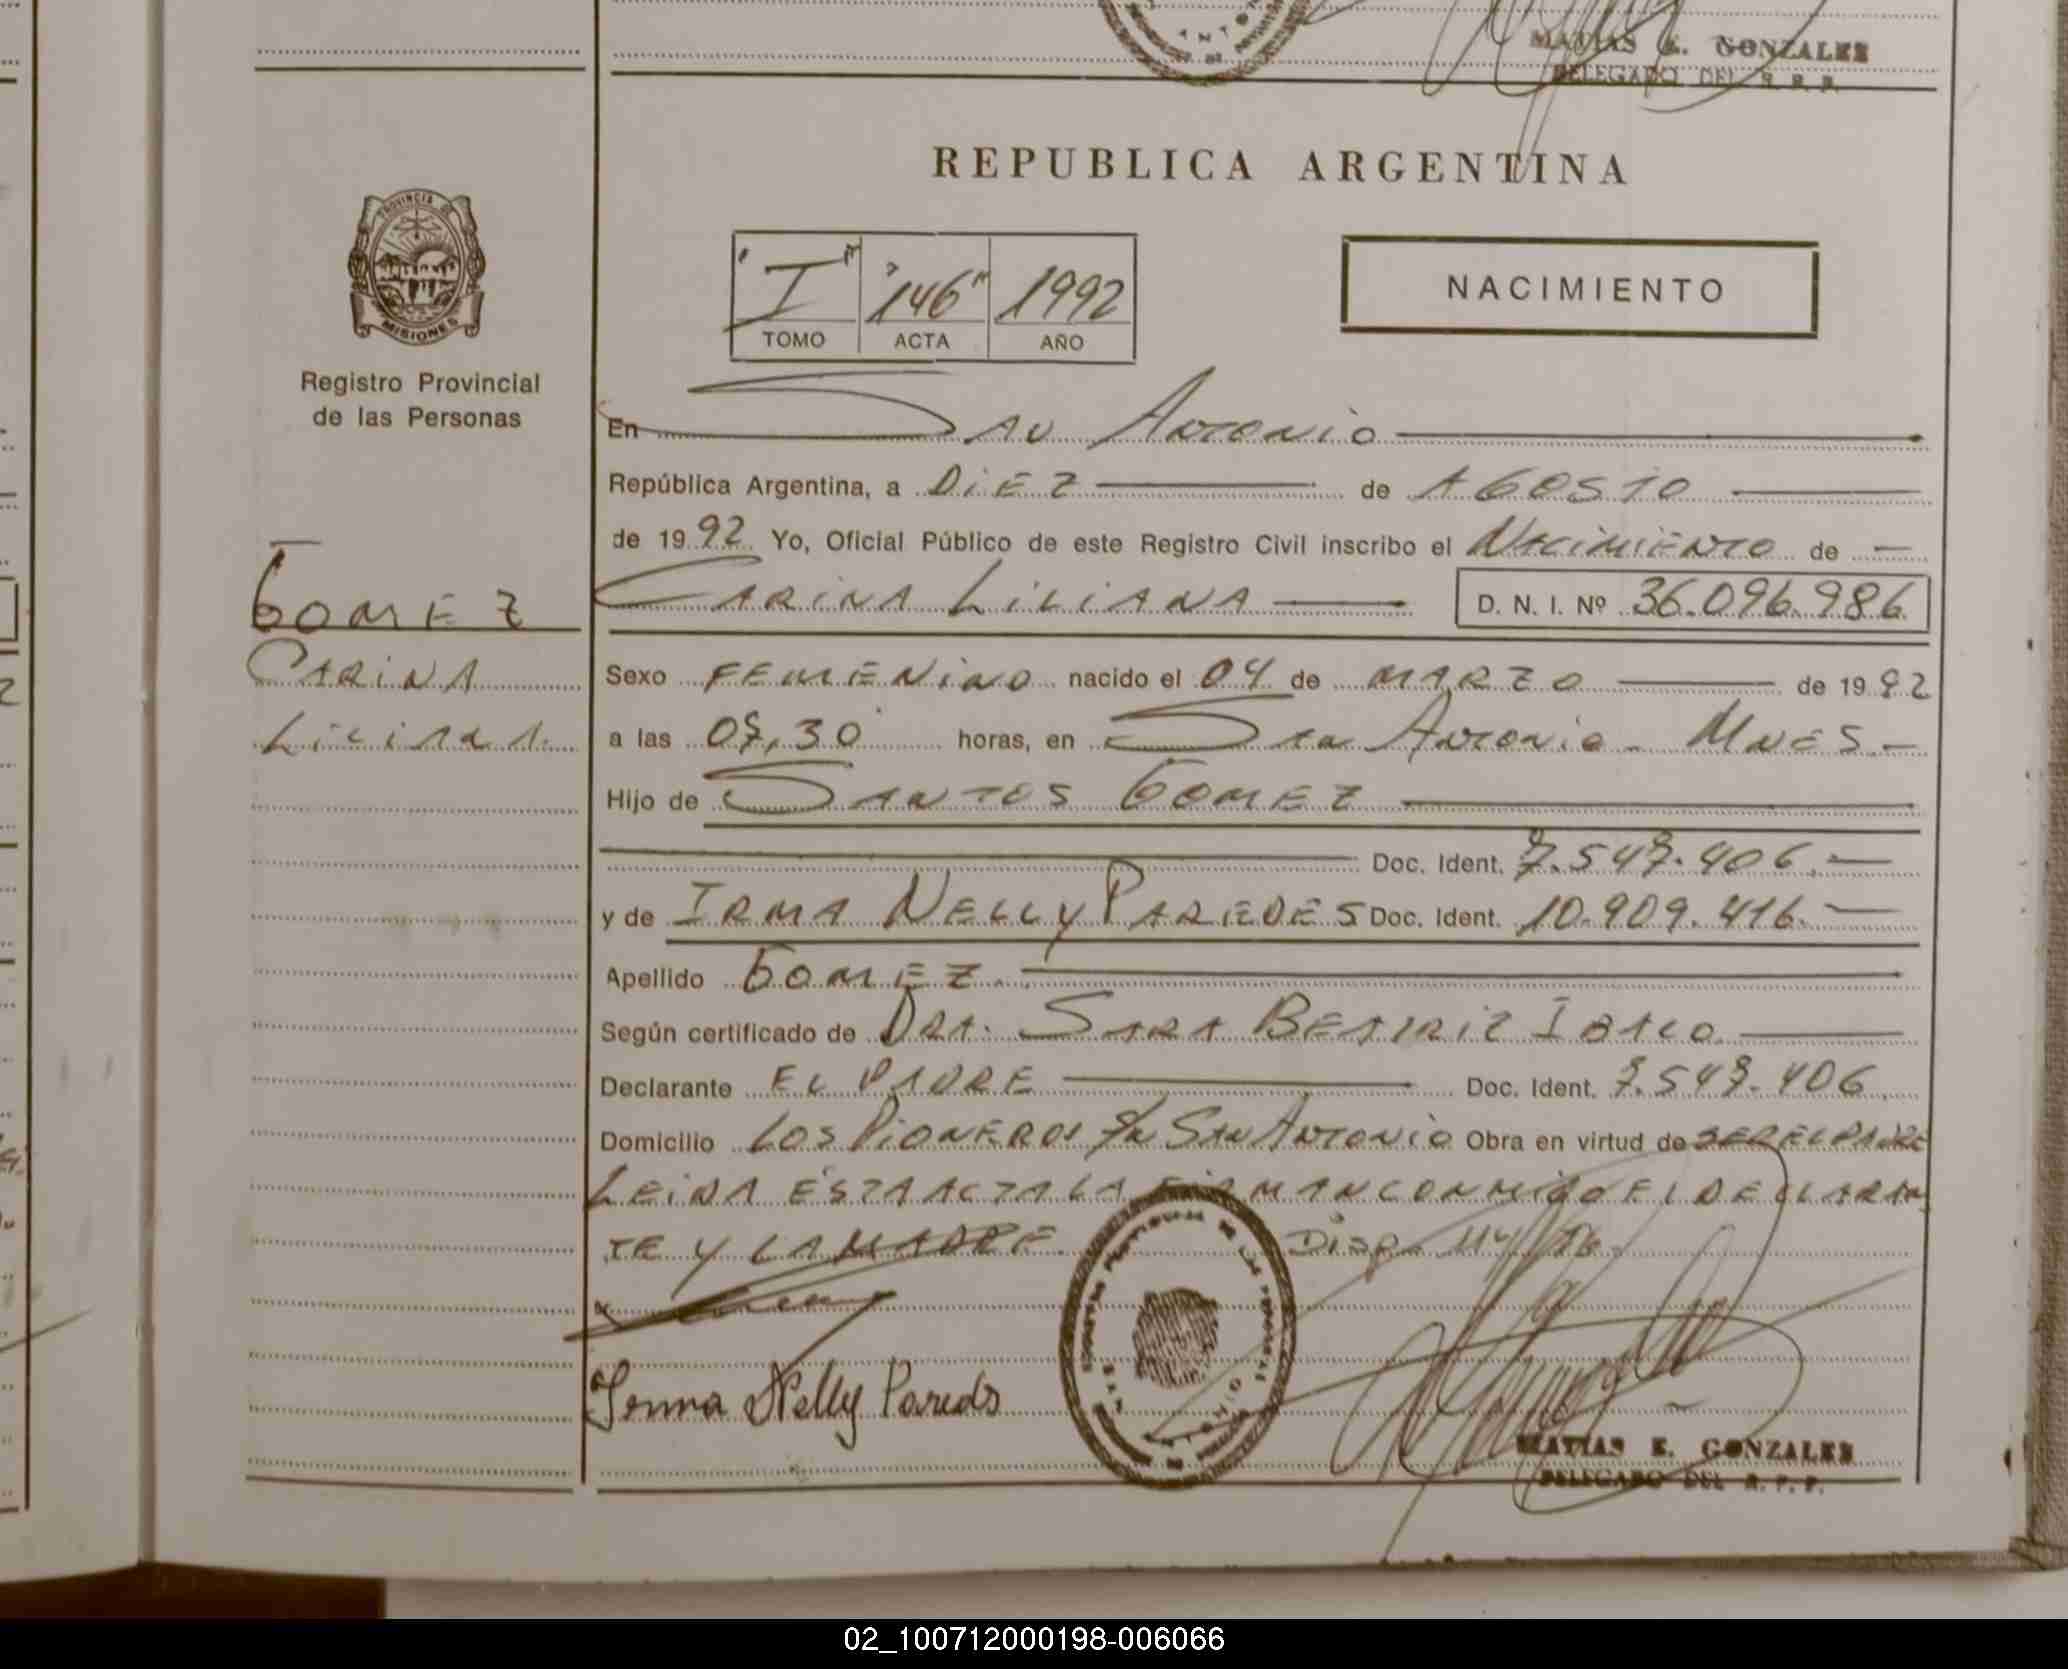 MATIAS E. GONZALES
DELEGADO DEL R. P. P.
REPUBLICA ARGENTINA
PROVINCIA DE
MISIONES
Registro Provincial
de las Personas
"I" "146" 1992
TOMO ACTA AÑO
NACIMIENTO
En San Antonio
República Argentina, a DiEZ de AGOSTO
de 1992 Yo, Oficial Público de este Registro Civil inscribo el NACiMiENTO de
CARiNA LiLiANA D. N. I. Nº 36.096.986
GOMEZ
CARiNA
LiLiANA.
Sexo FEMENiNO nacido el 04 de MARZO de 1992
a las 07,30 horas, en San Antonio - Mnes.
Hijo de SANTOS GOMEZ
Doc. Ident. 7.547.406.
y de IRMA NELLY PAREDES Doc. Ident. 10.909.416.
Apellido GOMEZ.
Según certificado de DRA. SARA BEATRIZ
Declarante EL PADRE Doc. Ident. 7.547.406
Domicilio LOS PiONEROS S/n SAN ANTONiO Obra en virtud de SER EL PADRE
LEiDA ESTA ACTA LA FiRMAN CONMiGO EL DECLARAN
TE Y LA MADRE. Disp.
Irma Nelly Paredes
MATIAS E. GONZALES
DELEGADO DEL R. P. P.
02_100712000198-006066